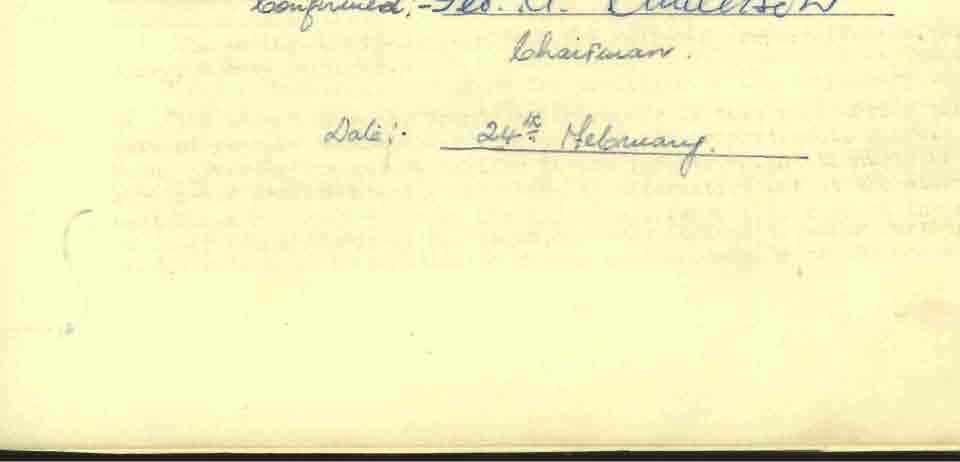 Confirmed:- Geo.
Chairman.
Date:- 24th February.